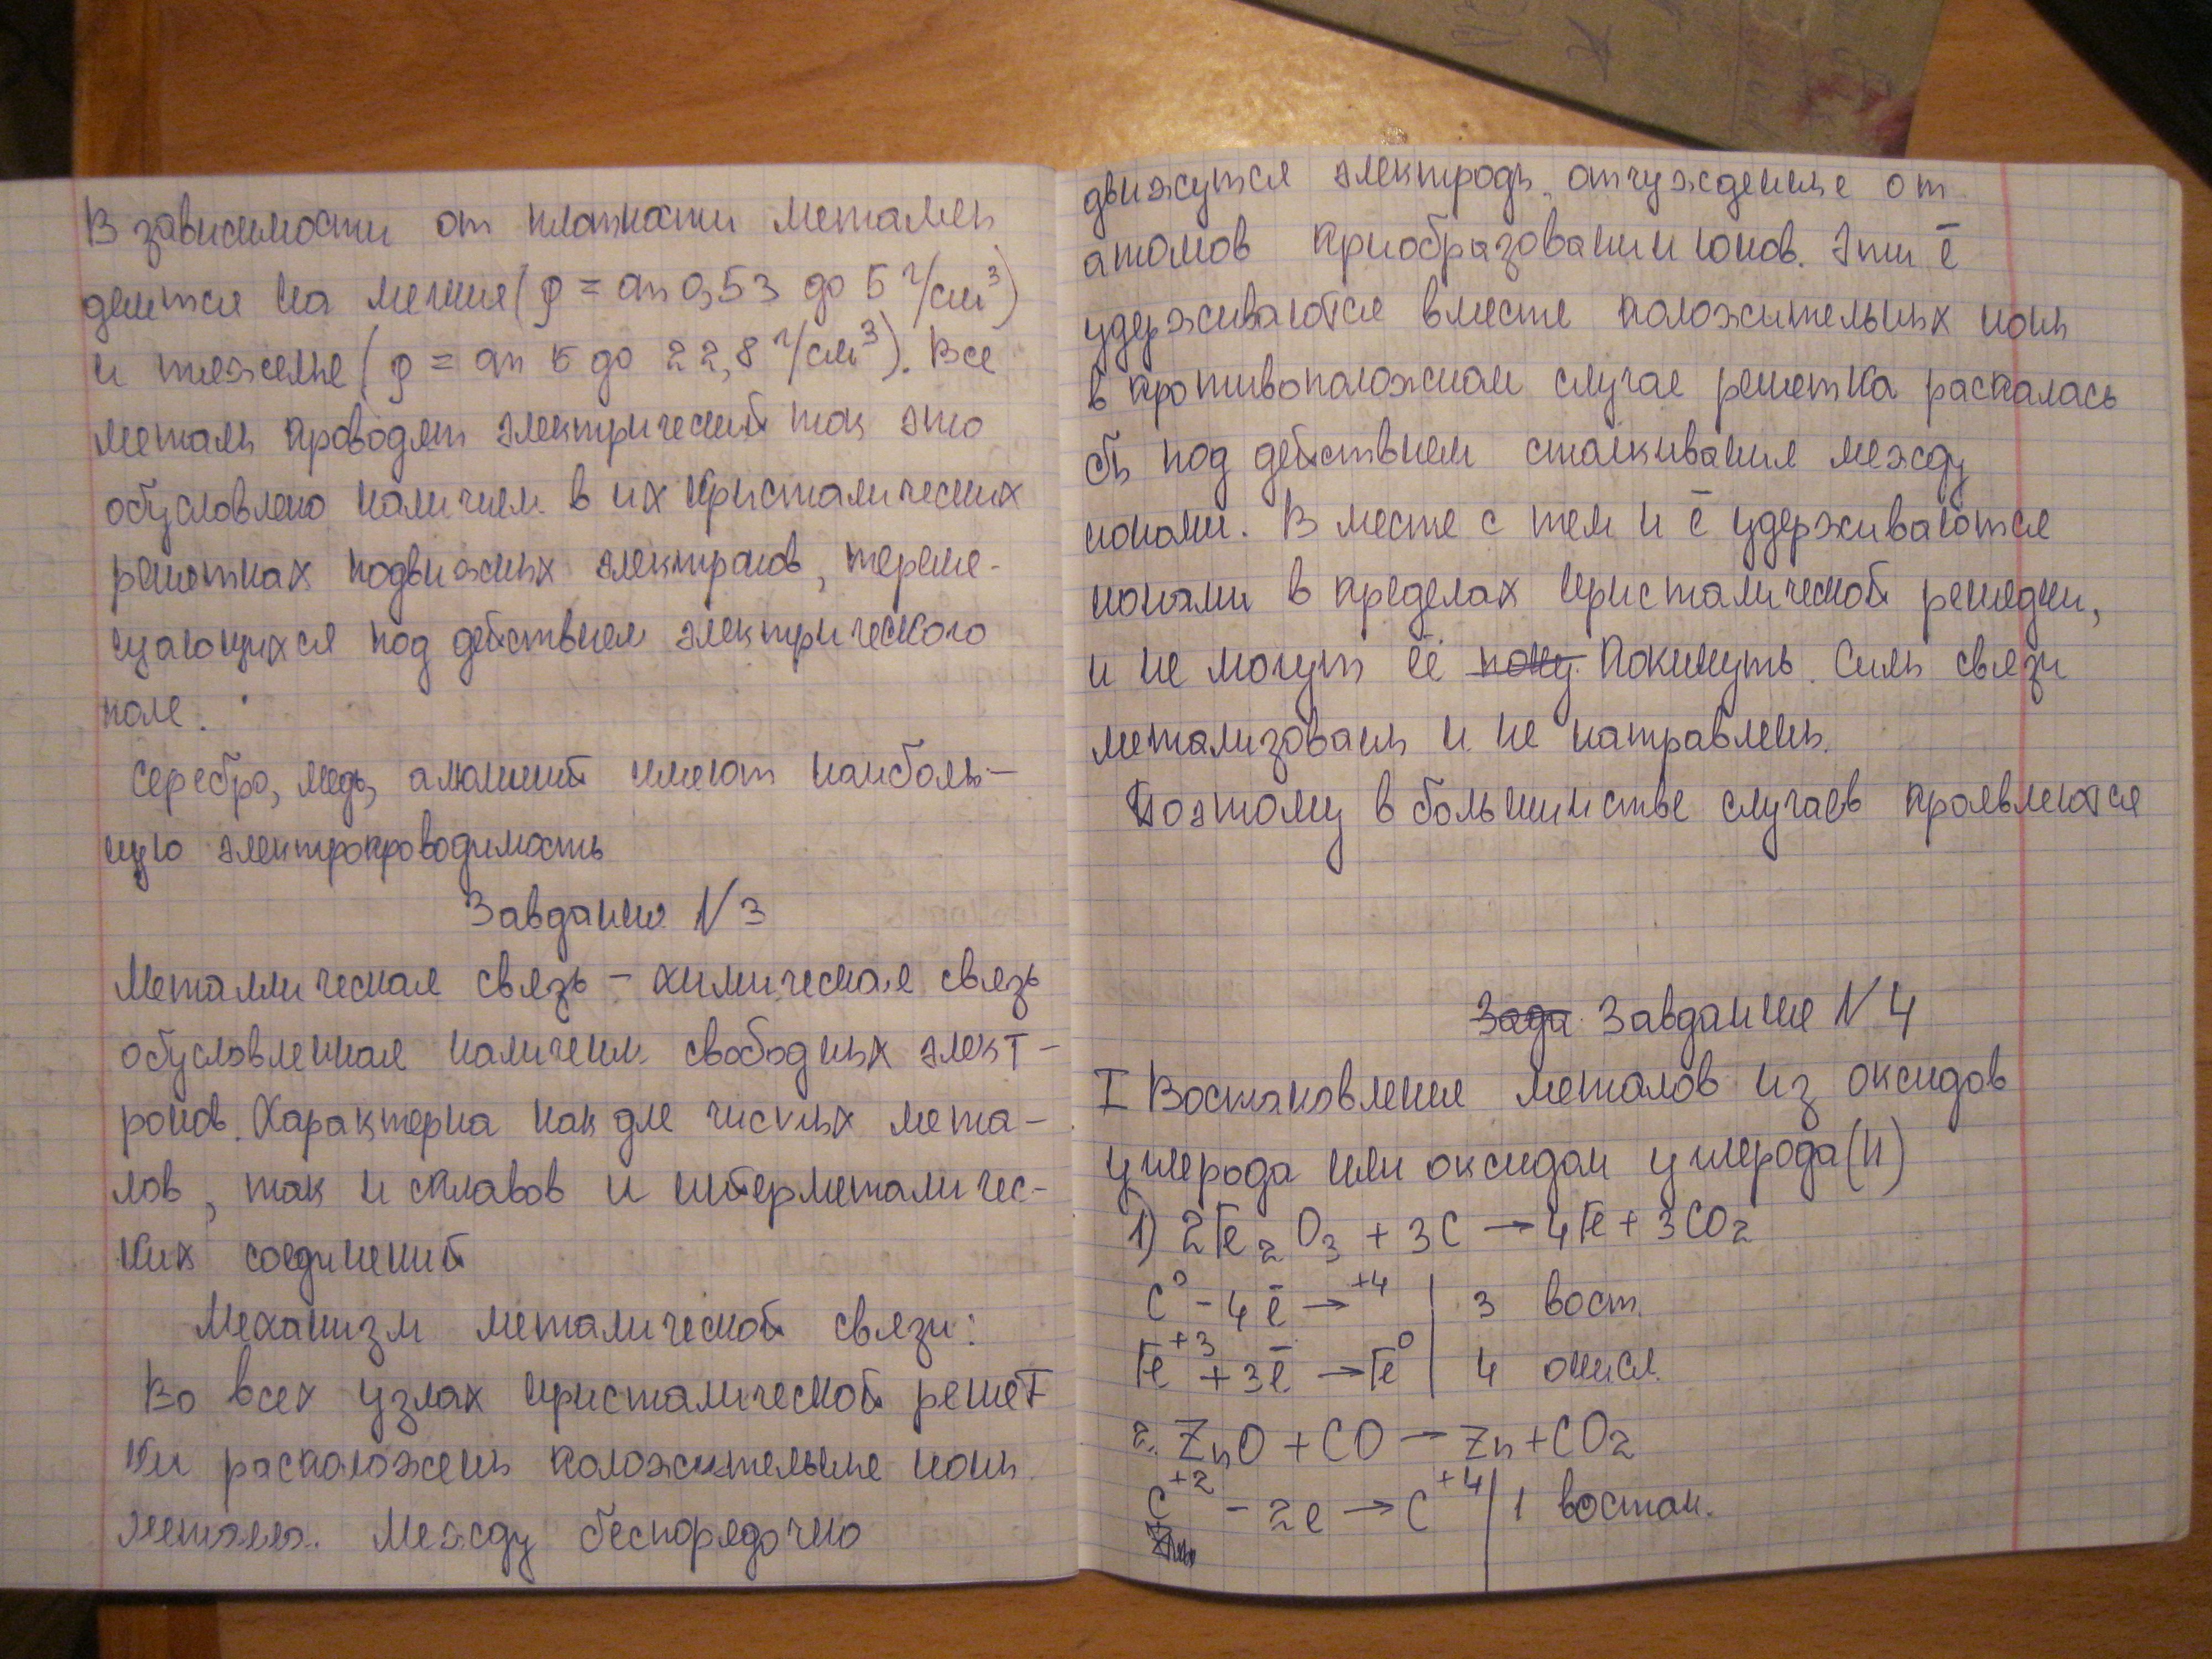 В зависимости от плотности металлы
делятся на легкие (ρ = от 0,53 до 5 г/см³)
и тяжелые (ρ = от 5 до 22,8 г/см³). Все
металы проводят электрический ток это
обусловлено наличием в их кристалических
решетках подвижных электронов, переме-
щающихся под действием электрического
поле.
Серебро, медь, алюминий имеют наиболь-
шую электропроводимость
Завдание N 3
Металлическая связь - химическая связь
обусловленная наличием свободных элект-
ронов. Характерна как для чистых мета-
лов, так и сплавов и интерметаличес-
ких соединений
Механизм металической связи:
Во всех узлах кристалической решет
ки расположены положительные ионы
металла. Между беспорядочно
движутся электроды, отчуждение от
атомов приобразовании ионов. Эти ē
удерживаются вместе положительных ионы
в противоположном случае решетка распалась
бы под действием сталкивания между
ионами. В месте с тем и ē удерживаются
ионами в пределах кристалической решедки,
и не могут её покинуть. Силы связи
метализованы и не направлены.
Поэтому в большинстве случаев проявляются
Завдание N 4
I Востановление металов из оксидов
углерода или оксидом углерода (II)
1) 2Fe₂O₃ + 3C → 4Fe + 3CO₂
C⁰ - 4ē → ⁺⁴ | 3 вост.
Fe⁺³ + 3ē → Fe⁰ | 4 окисл.
2. ZnO + CO → Zn + CO₂
C⁺² - 2e → C⁺⁴ | 1 востан.